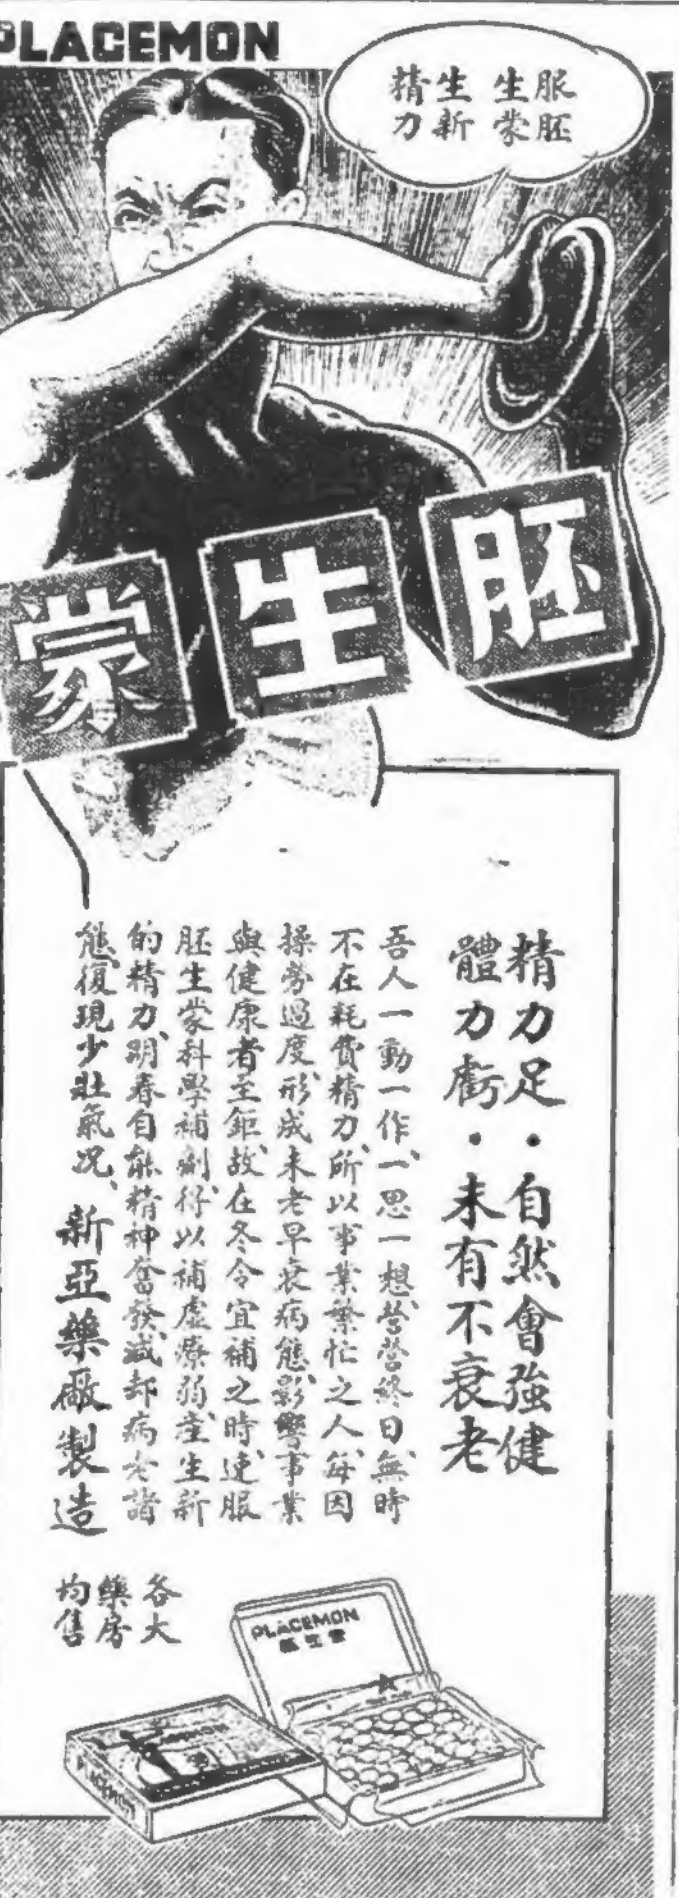 PLACEMON
服胚
生蒙
生新
精力
胚生蒙
精力足·自然會強健
體力虧·未有不衰老
吾人一動一作、一思一想、營營終日、無時
不在耗費精力、所以事業繁忙之人、每因
操勞過度、形成未老早衰病態、影響事業
與健康者至鉅、故在冬令宜補之時、速服
胚生蒙科學補劑、得以補虛療弱、產生新
的精力、明春自能精神奮發、減却病老諸
態、復現少壯氣況、
新亞藥廠製造
各大
藥房
均售
PLACEMON
胚生蒙
PLACEMON